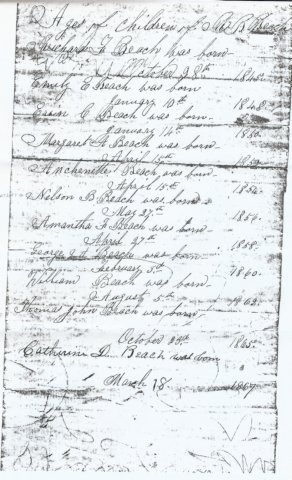 Ages of children of R B Beach
Richard F Beach was born
October 28th 1845.
Emily E Beach was born
January 10th 1848.
Erwin C Beach was born
January 14th 1850.
Margaret A Beach was born
April 15th
Beach was born
April 15th 1854.
Nelson B Beach was born
May 27th 1856.
Amantha F Beach was born
April 27th 1858.
George was born
February 5th 1860.
William Beach was born
August 5th 1862.
Thomas John Beach was born
October 28th 1865.
Catherine D. Beach was born
March 18 1867